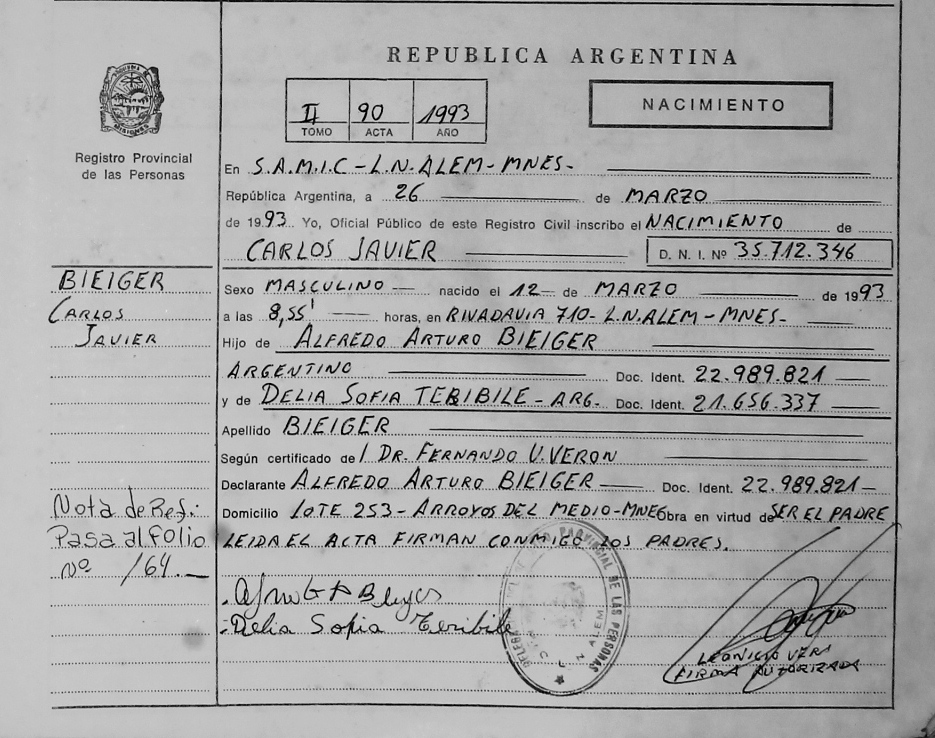 REPUBLICA ARGENTINA
II 90 1993
TOMO ACTA AÑO
NACIMIENTO
MISIONES
Registro Provincial
de las Personas
En S.A.M.I.C-L.N.ALEM-MNES-
República Argentina, a 26 de MARZO
de 1993 Yo, Oficial Público de este Registro Civil inscribo el NACIMIENTO de
CARLOS JAVIER D. N. I. Nº 35.712.346
BIEIGER
CARLOS
JAVIER
Sexo MASCULINO nacido el 12 de MARZO de 1993
a las 8,55' horas, en RIVADAVIA 710-L.N.ALEM-MNES-
Hijo de ALFREDO ARTURO BIEIGER
ARGENTINO Doc. Ident. 22.989.821
y de DELIA SOFIA TERIBILE-ARG- Doc. Ident. 21.656.337
Apellido BIEIGER
Según certificado de l DR. FERNANDO V. VERON
Declarante ALFREDO ARTURO BIEIGER Doc. Ident. 22.989.821-
Domicilio LOTE 253-ARROYOS DEL MEDIO-MNES Obra en virtud de SER EL PADRE
LEIDA EL ACTA FIRMAN CONMIGO LOS PADRES.
Nota de Ref:
Pasa al folio
nº /64.
Delia Sofia Teribile
PROVINCIAL DE LAS PERSONAS
L N ALEM
LEONICIO VERA
FIRMA AUTORIZADA